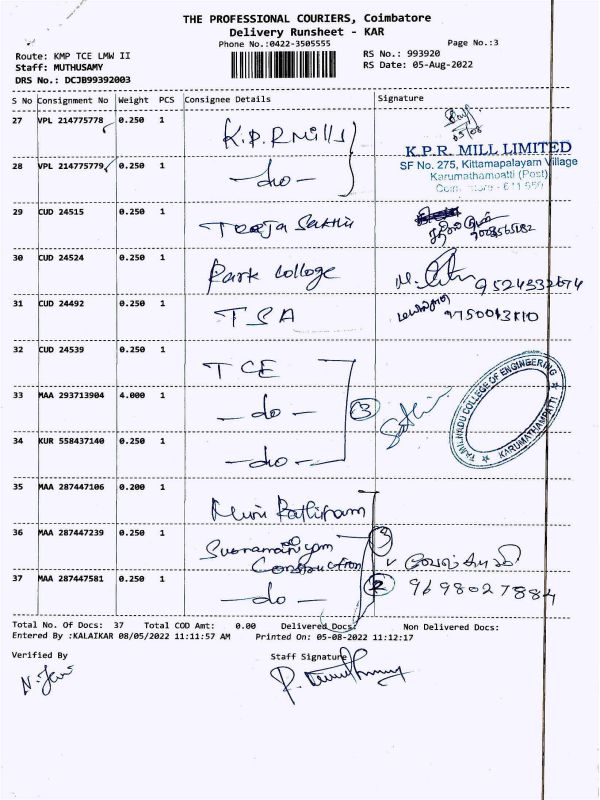 THE PROFESSIONAL COURIERS, Coimbatore
Delivery Runsheet - KAR
Phone No.:0422-3505555
Page No.:3
Route: KMP TCE LMW II
RS No.: 993920
Staff: MUTHUSAMY
RS Date: 05-Aug-2022
DRS No.: DCJB99392003
S No Consignment No Weight PCS Consignee Details Signature
27 VPL 214775778 0.250 1 K.P.R Mills
05/08
K.P.R. MILL LIMITED
28 VPL 214775779 0.250 1 -do-
SF No. 275, Kittampalayam Village
Karumathampatti (Post)
29 CUD 24515 0.250 1
30 CUD 24524 0.250 1 Park College
31 CUD 24492 0.250 1 TSA
32 CUD 24539 0.250 1 TCE
33 MAA 293713904 4.000 1 -do- 3
TAMILNADU COLLEGE OF ENGINEERING
KARUMATHAMPATTI
34 KUR 558437140 0.250 1 -do-
35 MAA 287447106 0.200 1
36 MAA 287447239 0.250 1 Construction
37 MAA 287447581 0.250 1 -do- 2 9698027884
Total No. Of Docs: 37 Total COD Amt: 0.00 Delivered Docs: Non Delivered Docs:
Entered By :KALAIKAR 08/05/2022 11:11:57 AM Printed On: 05-08-2022 11:12:17
Verified By Staff Signature